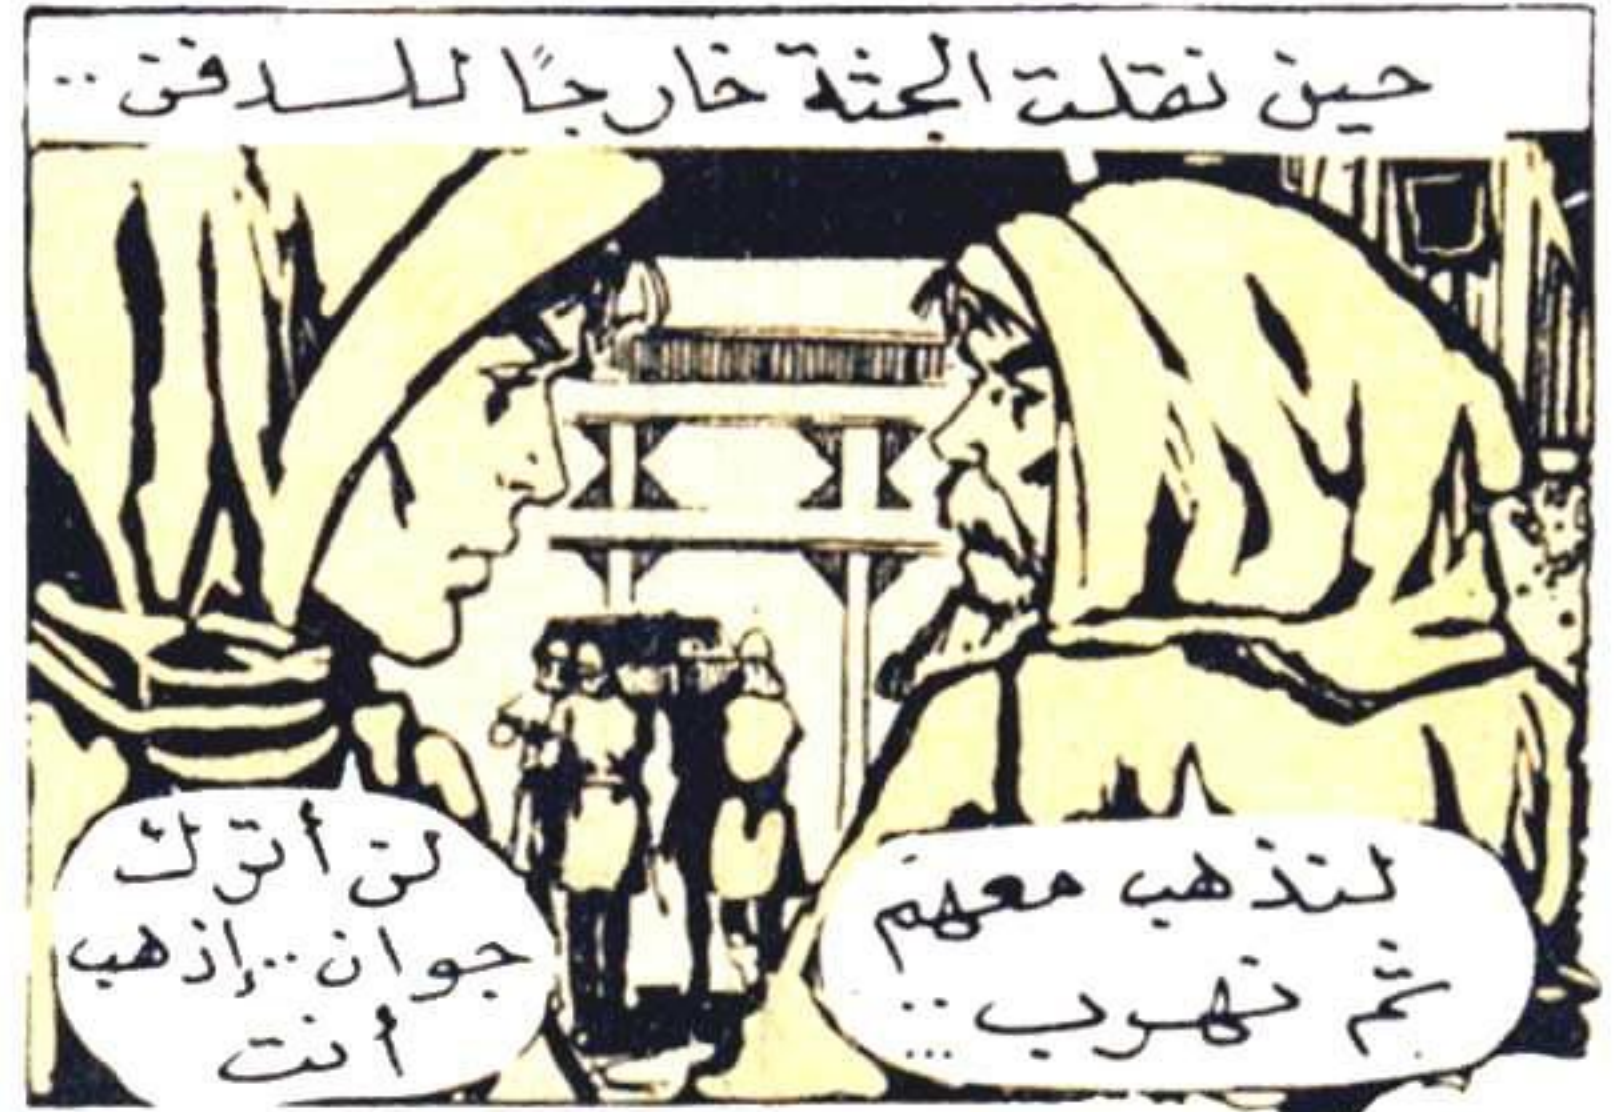 حين نقلت الجثة خارجًا للدفن..
لنذهب معهم
ثم نهرب..
لن أترك
جوان..إذهب
أنت